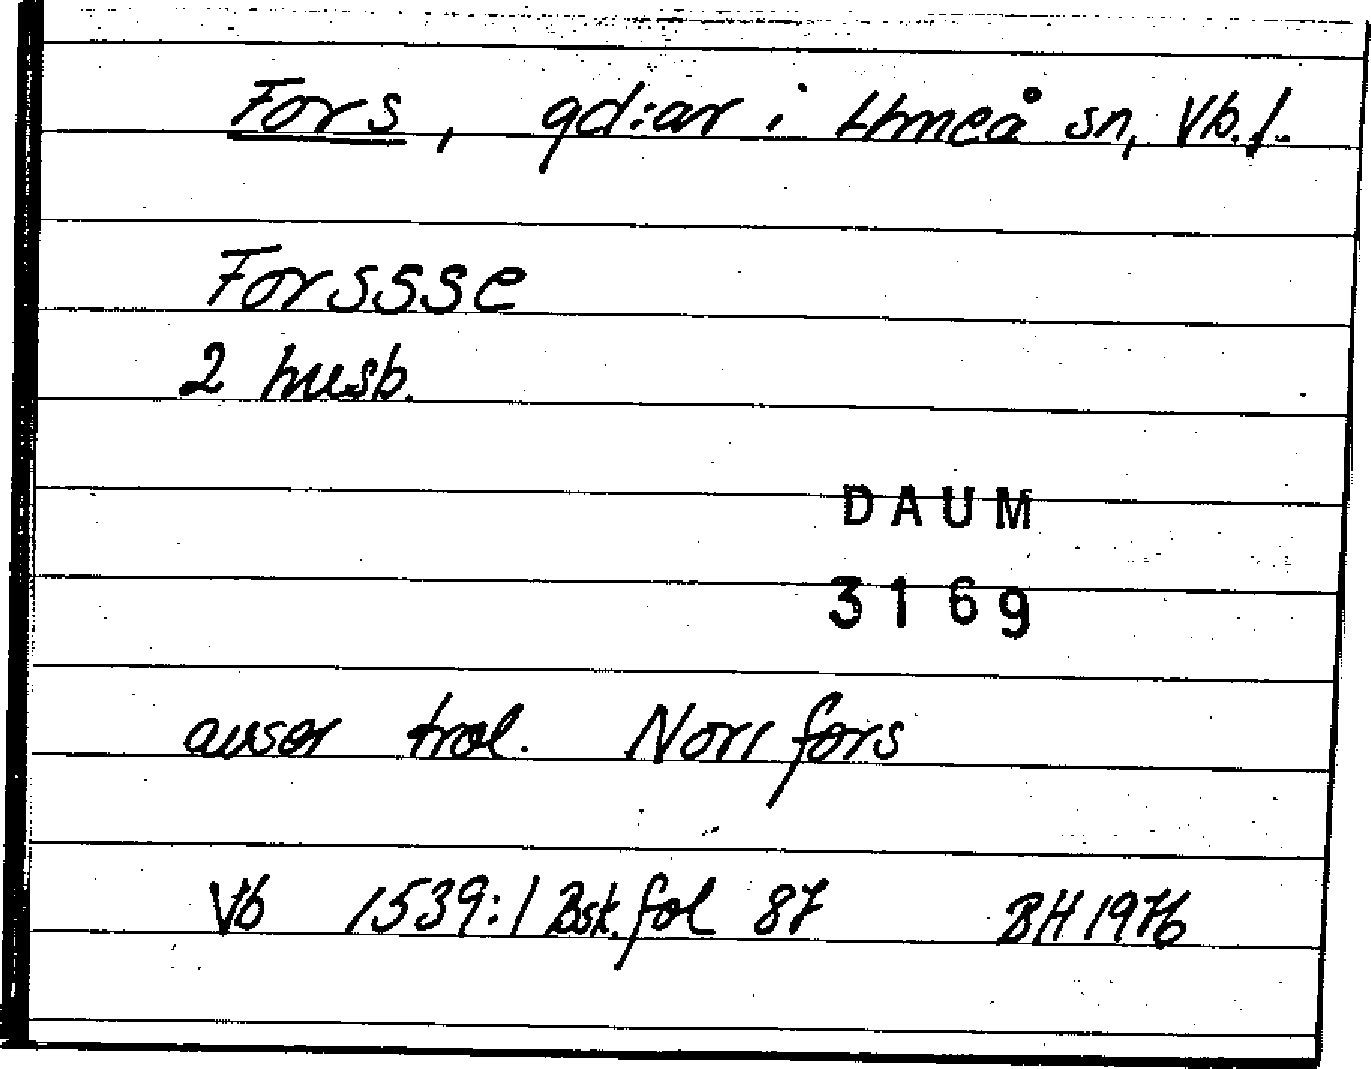 Fors, gd:ar i Umeå sn, Vb. l.
Forssse
2 husb.
DAUM
3169
avser trol. Norrfors
Vb 1539:1 Bsk. fol 87 BH 1976